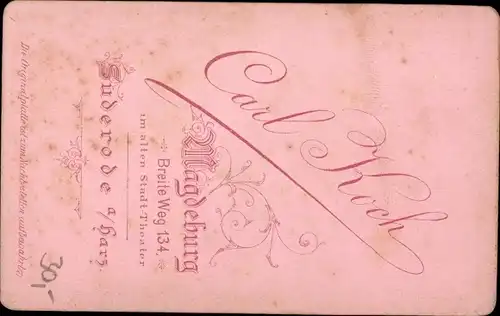 Carl Koch
Magdeburg
Breite Weg 134.
im alten Stadt-Theater
Suderode a/Harz.
Die Originalplatte ist zum Nachbestellen aufbewahrt.
30,-